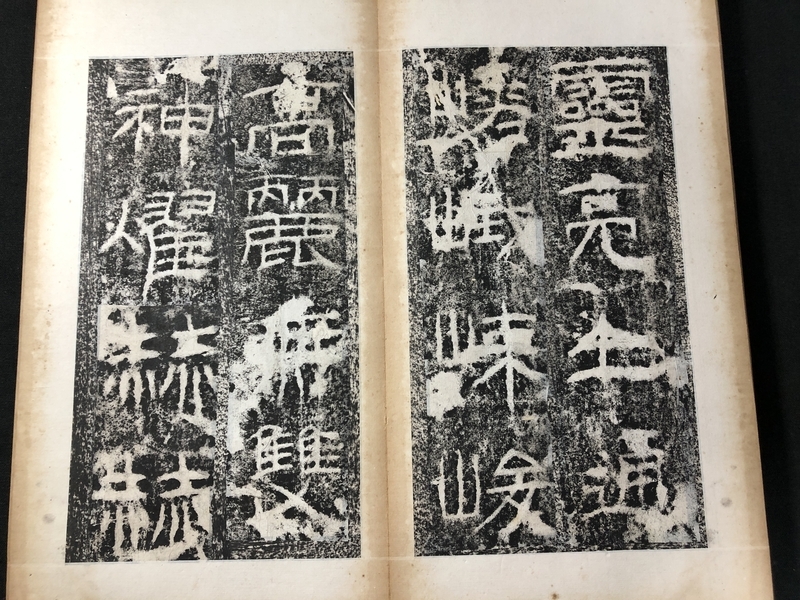 靈亮上通
嵯峨竦峻
高麗無雙
神燿赫赫